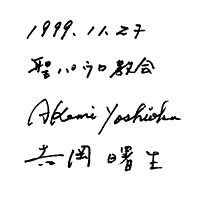 1999.11.27
聖パウロ教会
Akemi Yoshioka
吉岡 曙生